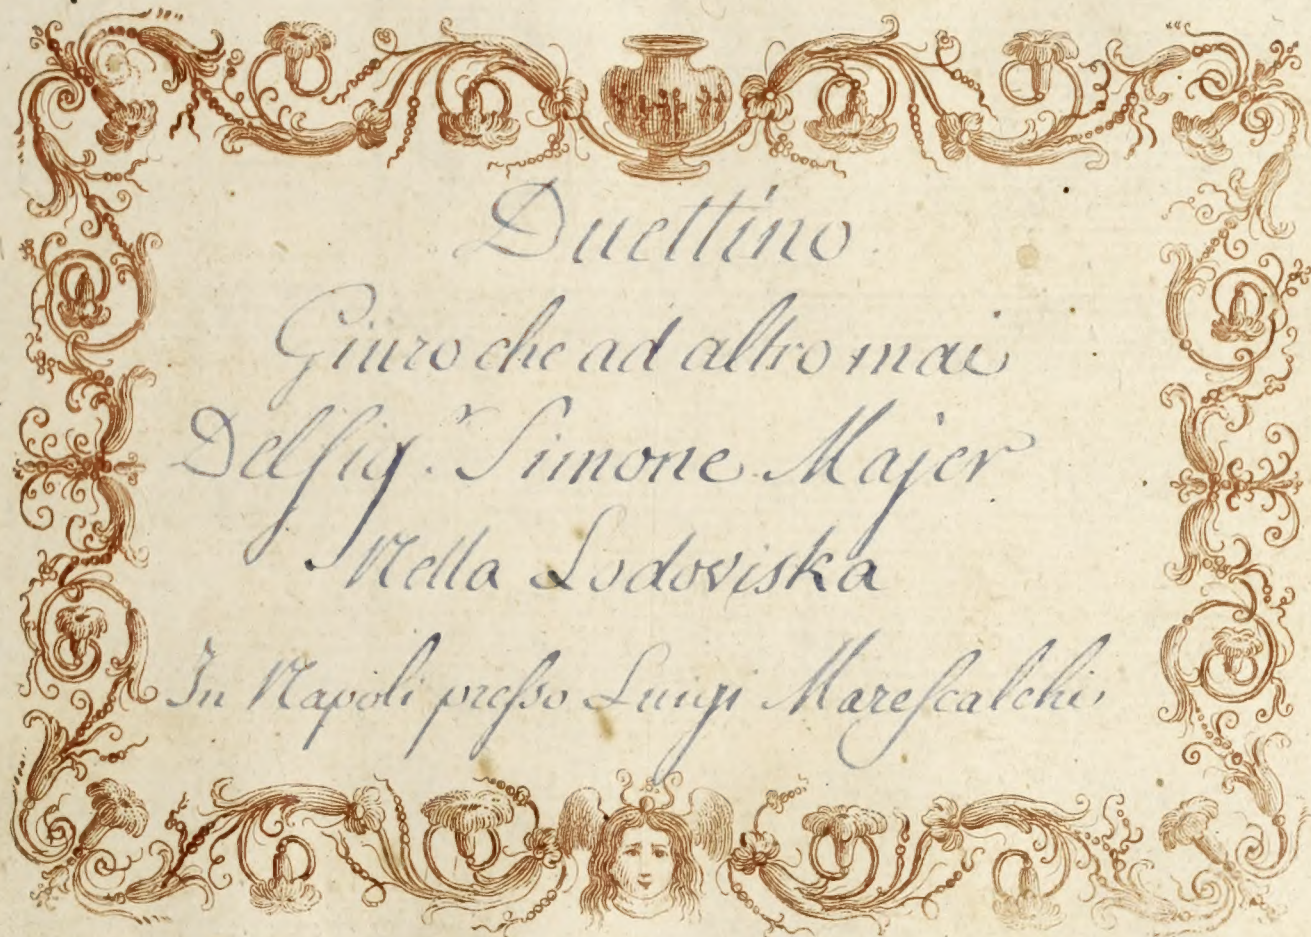 Duettino
Giuro che ad altro mai
Del Sig.r Simone Majer
Nella Lodoviska
In Napoli presso Luigi Marescalchi